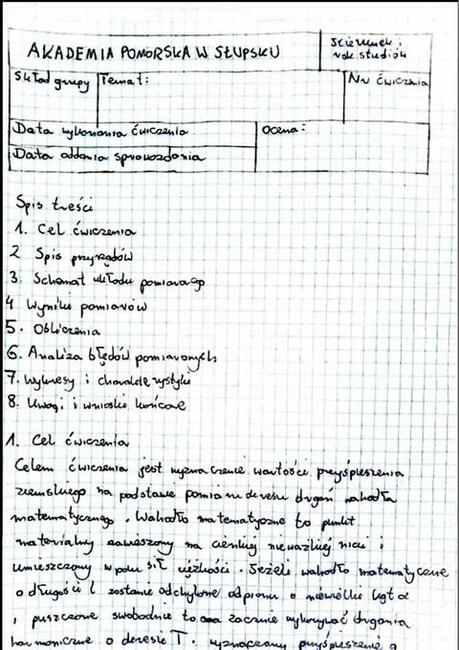 AKADEMIA POMORSKA W SŁUPSKU
kierunek i
rok studiów
Skład grupy
Temat:
Nr ćwiczenia
Data wykonania ćwiczenia
Ocena:
Data oddania sprawozdania
Spis treści
1. Cel ćwiczenia
2 Spis przyrządów
3. Schemat układu pomiarowego
4 Wyniki pomiarów
5. Obliczenia
6. Analiza błędów pomiarowych
7. Wykresy i charakterystyki
8. Uwagi i wnioski końcowe
1. Cel ćwiczenia
Celem ćwiczenia jest wyznaczenie wartości przyśpieszenia
ziemskiego na podstawie pomiaru okresu drgań wahadła
matematycznego. Wahadło matematyczne to punkt
materialny zawieszony na cienkiej nieważkiej nici i
umieszczony w polu sił ciężkości. Jeżeli wahadło matematyczne
o długości l zostanie odchylone od pionu o niewielki kąt α
i puszczone swobodnie to ona zacznie wykonywać drgania
harmoniczne o okresie T. wyznaczamy przyśpieszenie g